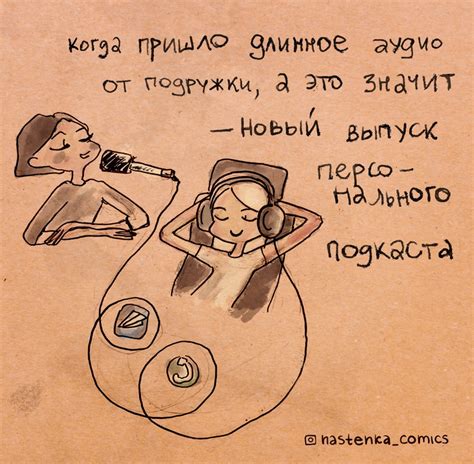 когда пришло длинное аудио
от подружки, а это значит
– новый выпуск
персо-
нального
подкаста
nastenka_comics